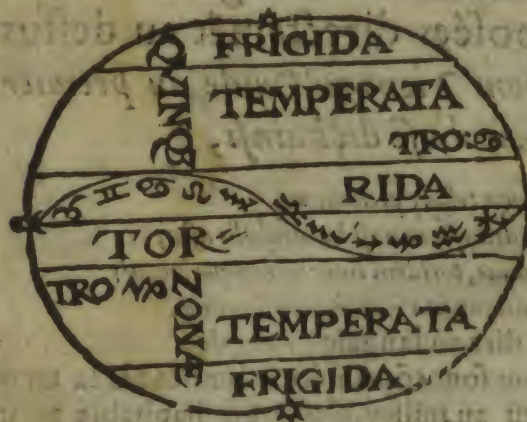 FRIGIDA
QVINQ3
TEMPERATA
TRO:♋
RIDA
♉ ♊ ♋ ♌ ♍ ♎ ♏ ♐ ♑ ♒ ♓
TOR=
TRO ♑
ZONÆ
TEMPERATA
FRIGIDA